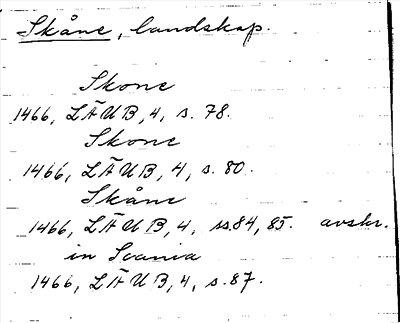 Skåne, landskap.
Skone
1466, LÄUB, 4, s. 78.
Skone
1466, LÄUB, 4, s. 80.
Skåne
1466, LÄUB, 4, ss. 84, 85. avskr.
in Scania
1466, LÄUB, 4, s. 87.